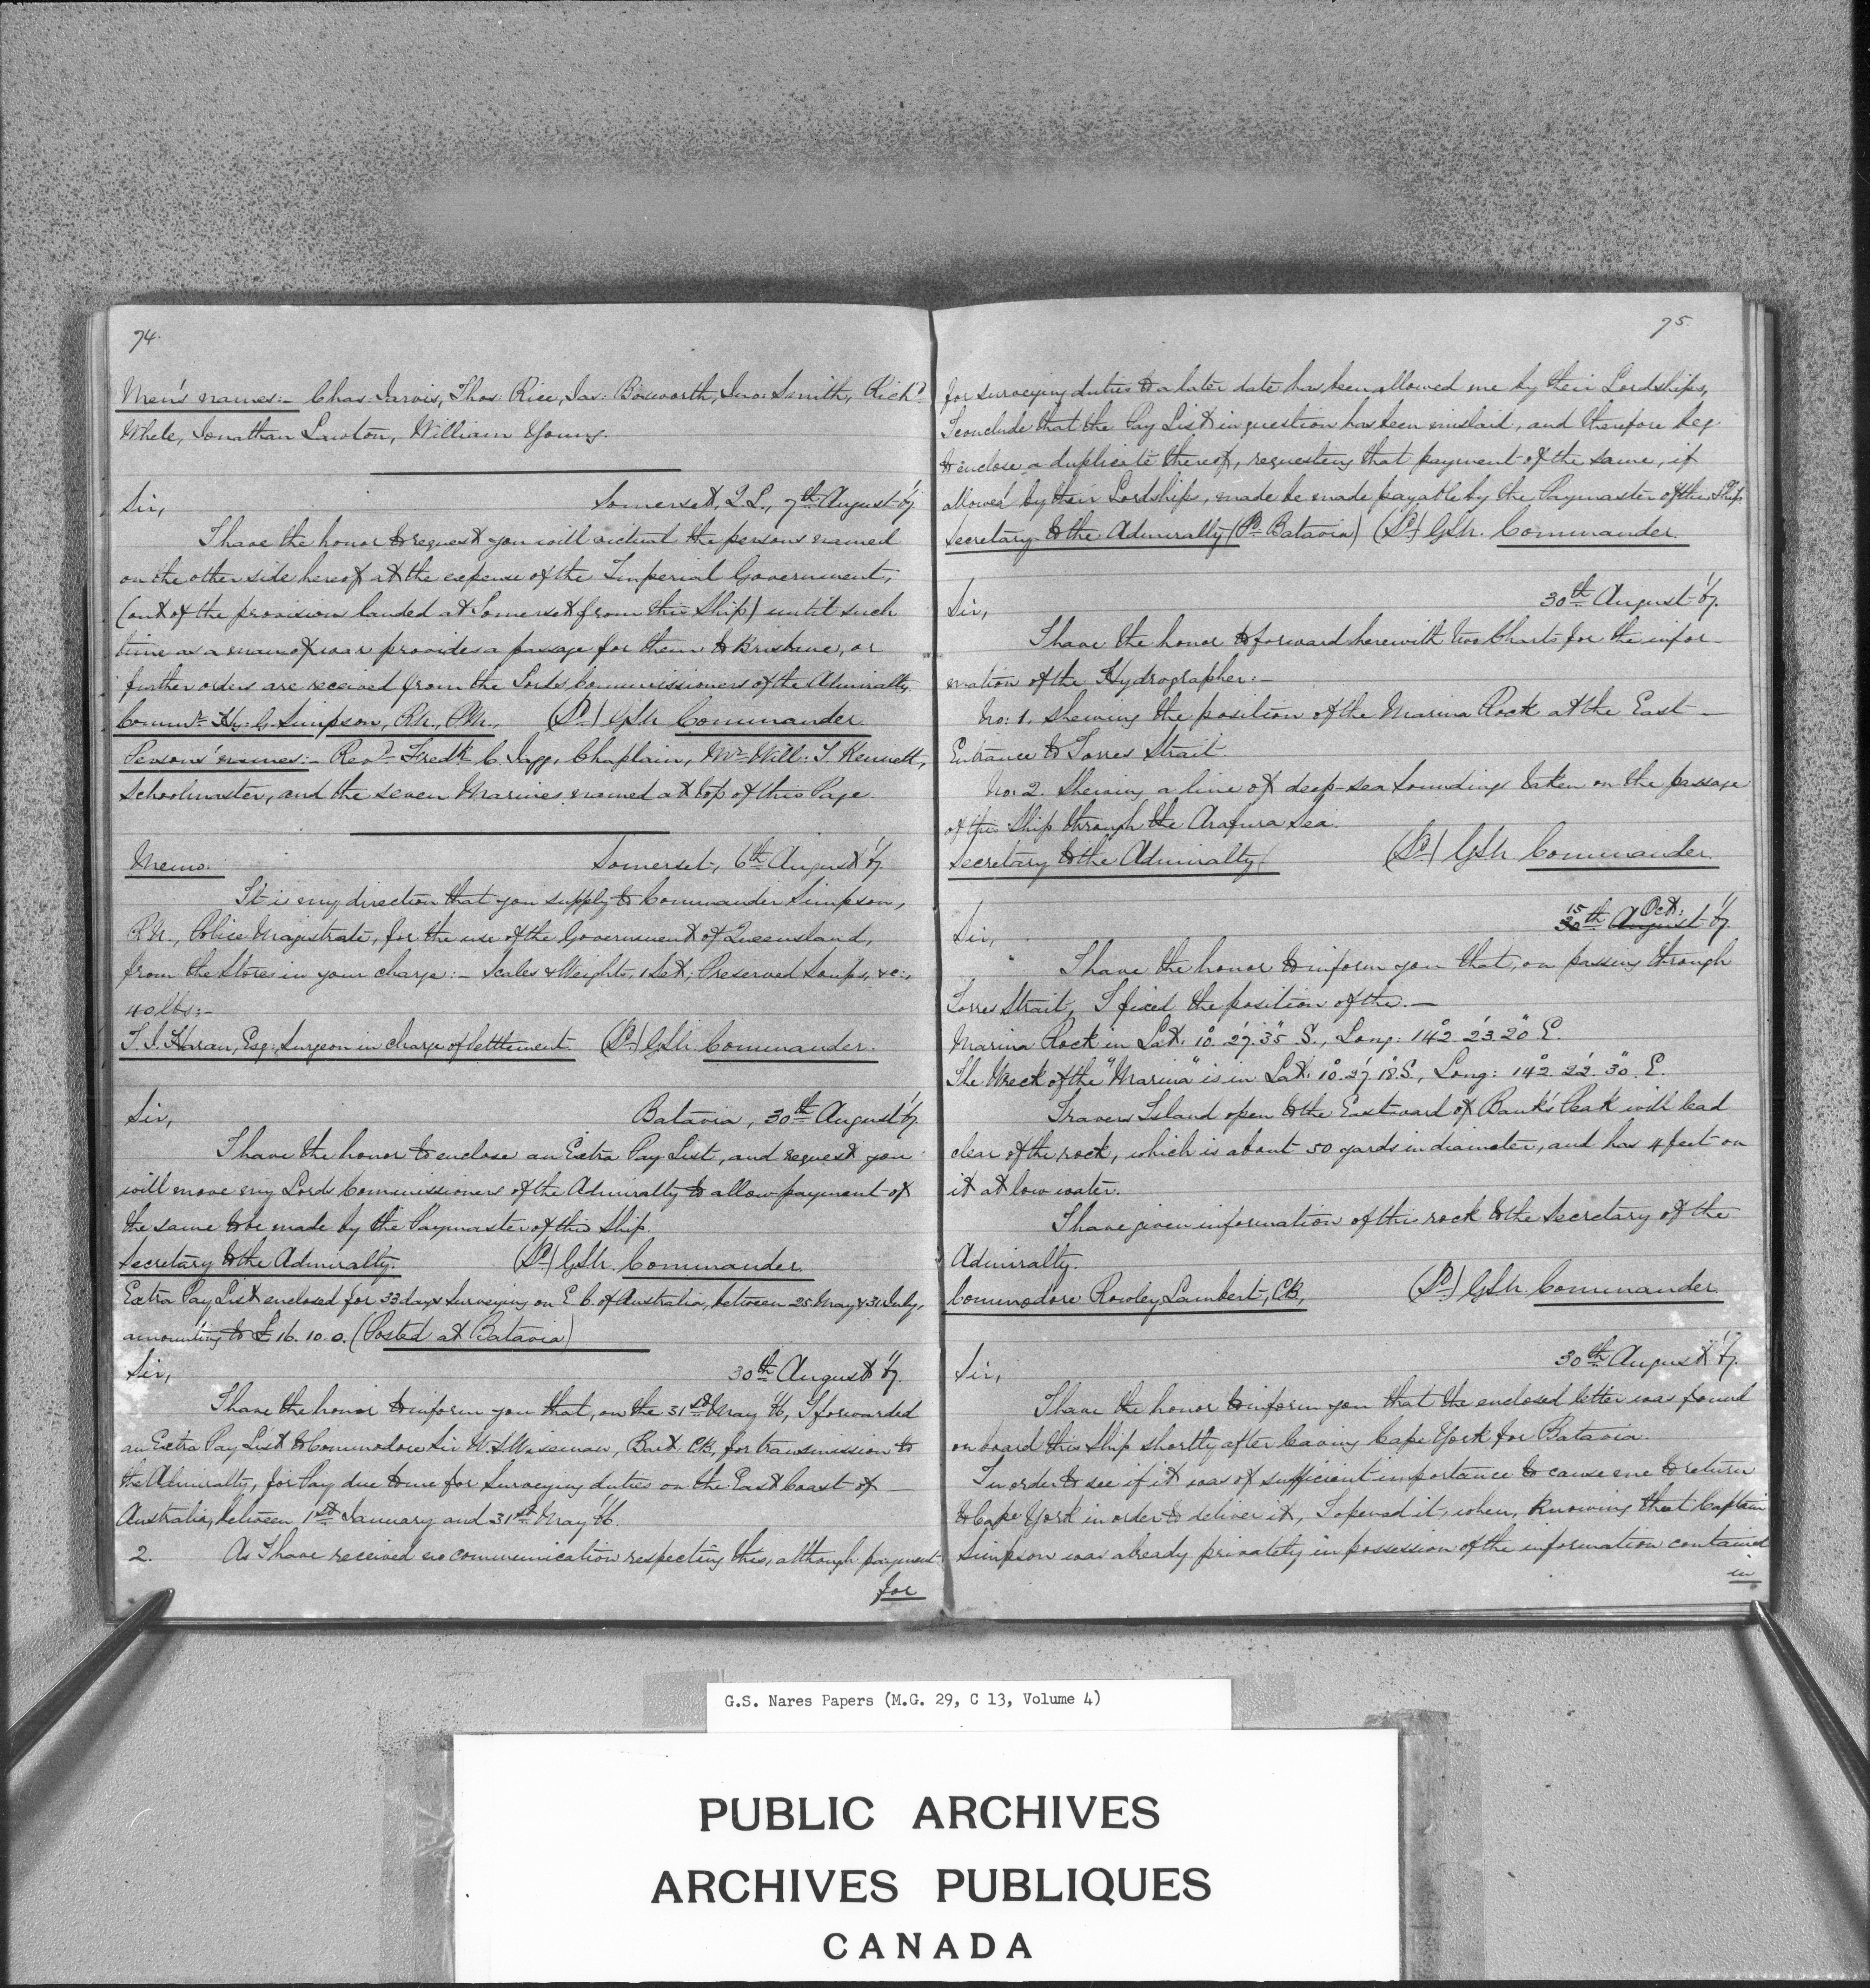 74.
Men's names:- Chas. Jarvis, Thos. Rice, Jas: Bosworth, Jno: Smith, Richd
White, Jonathan Lawton, William Young.
Sir, Somerset, Q.L., 7th August '67.
I have the honor to request you will victual the persons named
on the other side hereof at the expense of the Imperial Government,
(out of the provision landed at Somerset from this Ship) until such
time as a man of war provides a passage for them to Brisbane, or
further orders are received from the Lords Commissioners of the Admiralty.
Commr Hy: G. Simpson, R.N., P.M., (Sd) GSN Commander
Persons' names:- Revd Fredk C. Jagg, Chaplain, Mr Will: T Kennett,
Schoolmaster, and the seven Marines named at top of this Page.
Memo. Somerset, 6th August '67
It is my direction that you supply to Commander Simpson,
R.N., Police Magistrate, for the use of the Government of Queensland,
from the Stores in your charge:- Scales & Weights, 1 Set; Preserved Soups, &c:,
40 lbs:-
T. J. Haran, Esq: Surgeon in charge of Settlement (Sd) GSN. Commander.
Sir, Batavia, 30th August '67.
I have the honor to enclose an Extra Pay List, and request you
will move my Lords Commissioners of the Admiralty to allow payment of
the same to be made by the Paymaster of this Ship.
Secretary to the Admiralty. (Sd) GSN. Commander.
Extra Pay List enclosed for 33 days Surveying on E C. of Australia, between 25 May & 31 July,
amounting to £16. 10. 0. (Posted at Batavia)
Sir, 30th August '67.
I have the honor to inform you that, on the 31st May '66, I forwarded
an Extra Pay List to Commodore Sir W. S. Wiseman, Bart. CB, for transmission to
the Admiralty, for Pay due to me for Surveying duties on the East Coast of
Australia, between 1st January and 31st May '66.
2. As I have received no communication respecting this, although payment
for
75.
for surveying duties to a later date has been allowed me by their Lordships,
I conclude that the Pay List in question has been mislaid, and therefore beg
to enclose a duplicate thereof, requesting that payment of the same, if
allowed by their Lordships, made be made payable by the Paymaster of this Ship.
Secretary to the Admiralty (Pd Batavia) (Sd) GSN. Commander.
Sir, 30th August '67.
I have the honor to forward herewith two Charts for the infor-
mation of the Hydrographer:-
No: 1. Shewing the position of the Marina Rock at the East
Entrance to Torres Strait.
No: 2. Shewing a line of deep-sea Soundings taken on the passage
of this Ship through the Arafura Sea.
Secretary to the Admiralty (Sd) GSN Commander.
Sir, 30th August 15 Oct: '67.
I have the honor to inform you that, on passing through
Torres Strait, I fixed the position of the.—
Marina Rock in Lat. 10° 27' 35" S., Long: 142° 23' 20" E.
The Wreck of the "Marina" is in Lat. 10° 27' 18" S., Long: 142° 22' 30" E.
Travers Island open to the Eastward of Bank's Peak will lead
clear of the rock, which is about 50 yards in diameter, and has 4 feet on
it at low water.
I have given information of this rock to the Secretary of the
Admiralty.
Commodore Rowley Lambert, CB, (Sd) GSN. Commander.
Sir, 30th August '67.
I have the honor to inform you that the enclosed letter was found
on board this Ship shortly after leaving Cape York for Batavia.
In order to see if it was of sufficient importance to cause me to return
to Cape York in order to deliver it, I opened it, when, Knowing that Captain
Simpson was already privately in possession of the information contained
in
G.S. Nares Papers (M.G. 29, C 13, Volume 4)
PUBLIC ARCHIVES
ARCHIVES PUBLIQUES
CANADA